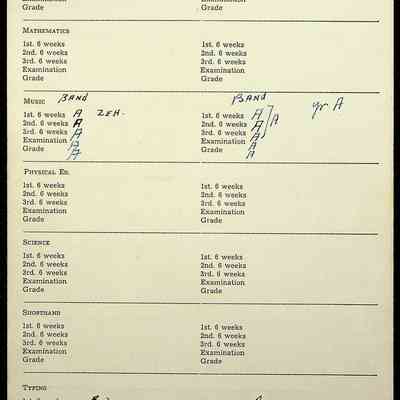 Grade Grade
MATHEMATICS
1st. 6 weeks 1st. 6 weeks
2nd. 6 weeks 2nd. 6 weeks
3rd. 6 weeks 3rd. 6 weeks
Examination Examination
Grade Grade
MUSIC BAND BAND yr A
1st. 6 weeks A ZEH. 1st. 6 weeks A
2nd. 6 weeks A 2nd. 6 weeks A A
3rd. 6 weeks A 3rd. 6 weeks A
Examination A Examination A
Grade A Grade A
PHYSICAL ED.
1st. 6 weeks 1st. 6 weeks
2nd. 6 weeks 2nd. 6 weeks
3rd. 6 weeks 3rd. 6 weeks
Examination Examination
Grade Grade
SCIENCE
1st. 6 weeks 1st. 6 weeks
2nd. 6 weeks 2nd. 6 weeks
3rd. 6 weeks 3rd. 6 weeks
Examination Examination
Grade Grade
SHORTHAND
1st. 6 weeks 1st. 6 weeks
2nd. 6 weeks 2nd. 6 weeks
3rd. 6 weeks 3rd. 6 weeks
Examination Examination
Grade Grade
TYPING